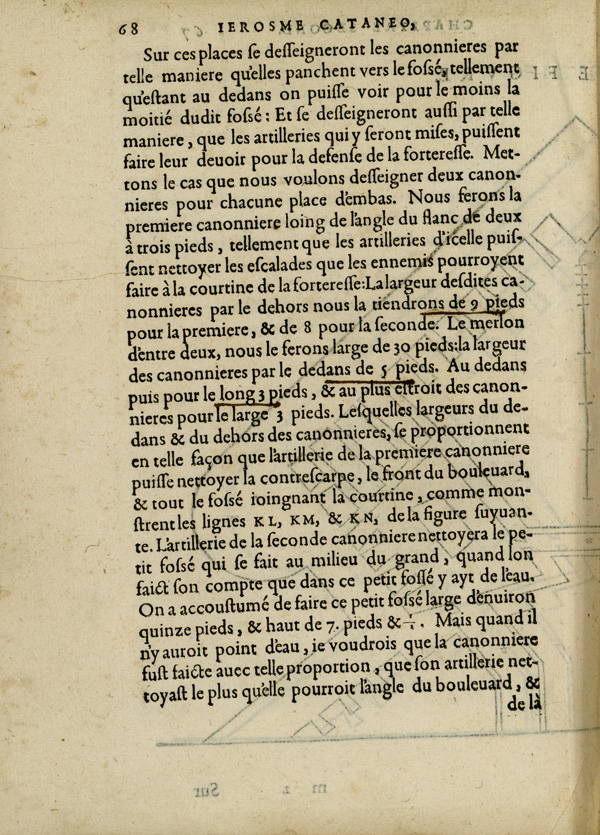 68 IEROSME CATANEO,
Sur ces places se desseigneront les canonnieres par
telle maniere qu'elles panchent vers le fossé, tellement
qu'estant au dedans on puisse voir pour le moins la
moitié dudit fossé: Et se desseigneront aussi par telle
maniere, que les artilleries qui y seront mises, puissent
faire leur deuoir pour la defense de la forteresse. Met-
tons le cas que nous voulons desseigner deux canon-
nieres pour chacune place d'embas. Nous ferons la
premiere canonniere loing de l'angle du flanc de deux
à trois pieds, tellement que les artilleries d'icelle puis-
sent nettoyer les escalades que les ennemis pourroyent
faire à la courtine de la forteresse: La largeur desdites ca-
nonnieres par le dehors nous la tiendrons de 9 pieds
pour la premiere, & de 8 pour la seconde. Le merlon
d'entre deux, nous le ferons large de 30 pieds: la largeur
des canonnieres par le dedans de 5 pieds. Au dedans
puis pour le long 3 pieds, & au plus estroit des canon-
nieres pour le large 3 pieds. Lesquelles largeurs du de-
dans & du dehors des canonnieres, se proportionnent
en telle façon que l'artillerie de la premiere canonniere
puisse nettoyer la contrescarpe, le front du bouleuard,
& tout le fossé ioingnant la courtine, comme mon-
strent les lignes KL, KM, & KN, de la figure suyuan-
te. L'artillerie de la seconde canonniere nettoyera le pe-
tit fossé qui se fait au milieu du grand, quand lon
faict son compte que dans ce petit fossé y ayt de l'eau.
On a accoustumé de faire ce petit fossé large d'enuiron
quinze pieds, & haut de 7. pieds & . Mais quand il
n'y auroit point d'eau, ie voudrois que la canonniere
fust faicte auec telle proportion, que son artillerie net-
toyast le plus qu'elle pourroit l'angle du bouleuard, &
de là